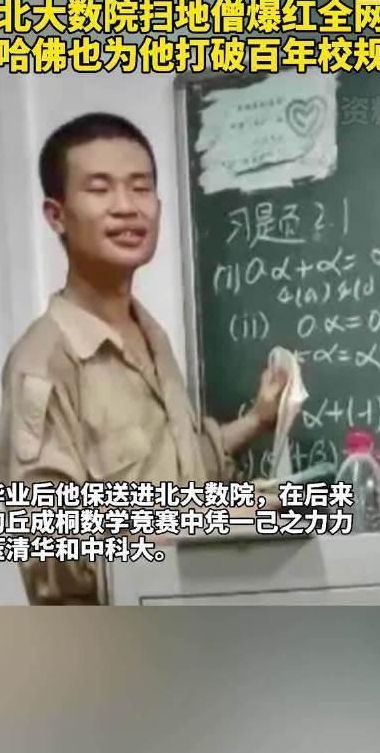 北大数院扫地僧爆红全网
哈佛也为他打破百年校规
资料
习题 2.1
(i) 0α+α=
(ii) 0α=0
α=α
α+(-1)
毕业后他保送进北大数院，在后来
的丘成桐数学竞赛中凭一己之力力
压清华和中科大。